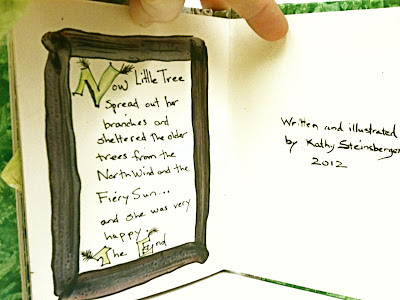 Now Little Tree
Spread out her
branches and
sheltered the older
trees from the
North Wind and the
Fiery Sun...
and she was very
happy.
The End
Written and illustrated
by Kathy Steinsberger
2012